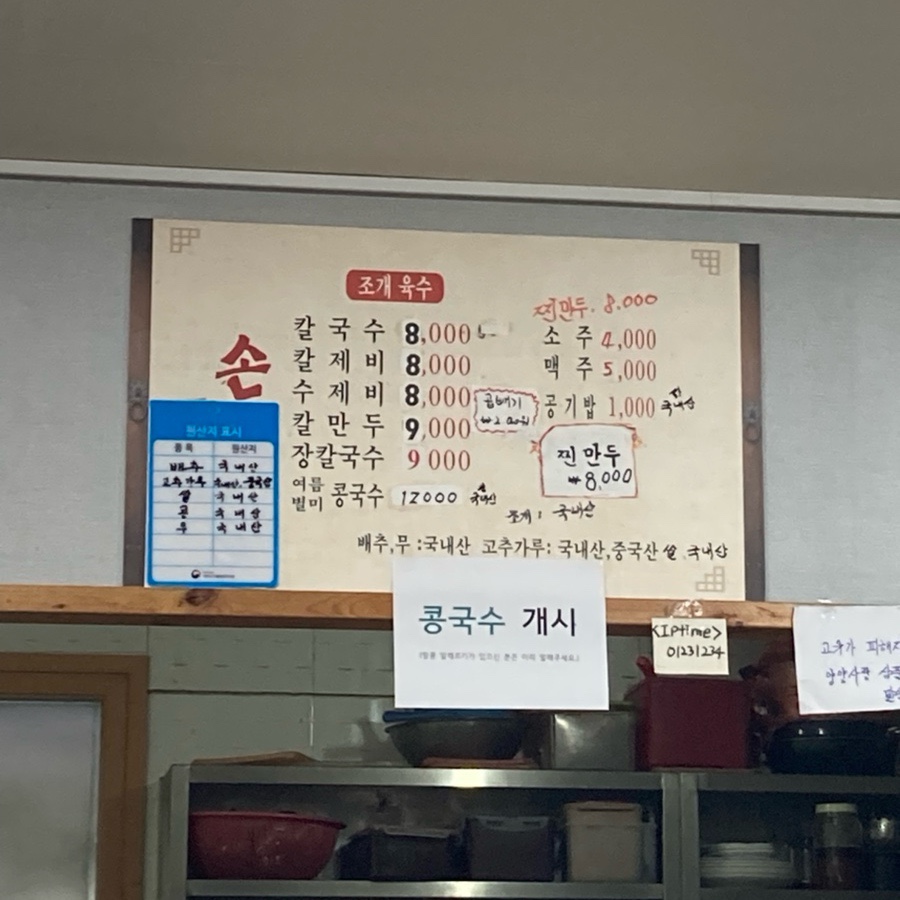 조개 육수
찐만두. 8.000
손
칼국수 8,000
칼제비 8,000
수제비 8,000
칼만두 9,000
장칼국수 9 000
여름 별미 콩국수 12000 쌀 국내산
소주 4,000
맥주 5,000
공기밥 1,000 쌀 국내산
곱배기
₩2,000원
찐만두
₩8,000
조개 : 국내산
배추,무 :국내산 고추가루: 국내산,중국산 쌀 국내산
원산지 표시
품목 원산지
배추 국내산
고추가루 국내산, 중국산
쌀 국내산
콩 국내산
무 국내산
콩국수 개시
(땅콩 알레르기가 있으신 분은 미리 말해주세요.)
<IPtime>
01231234